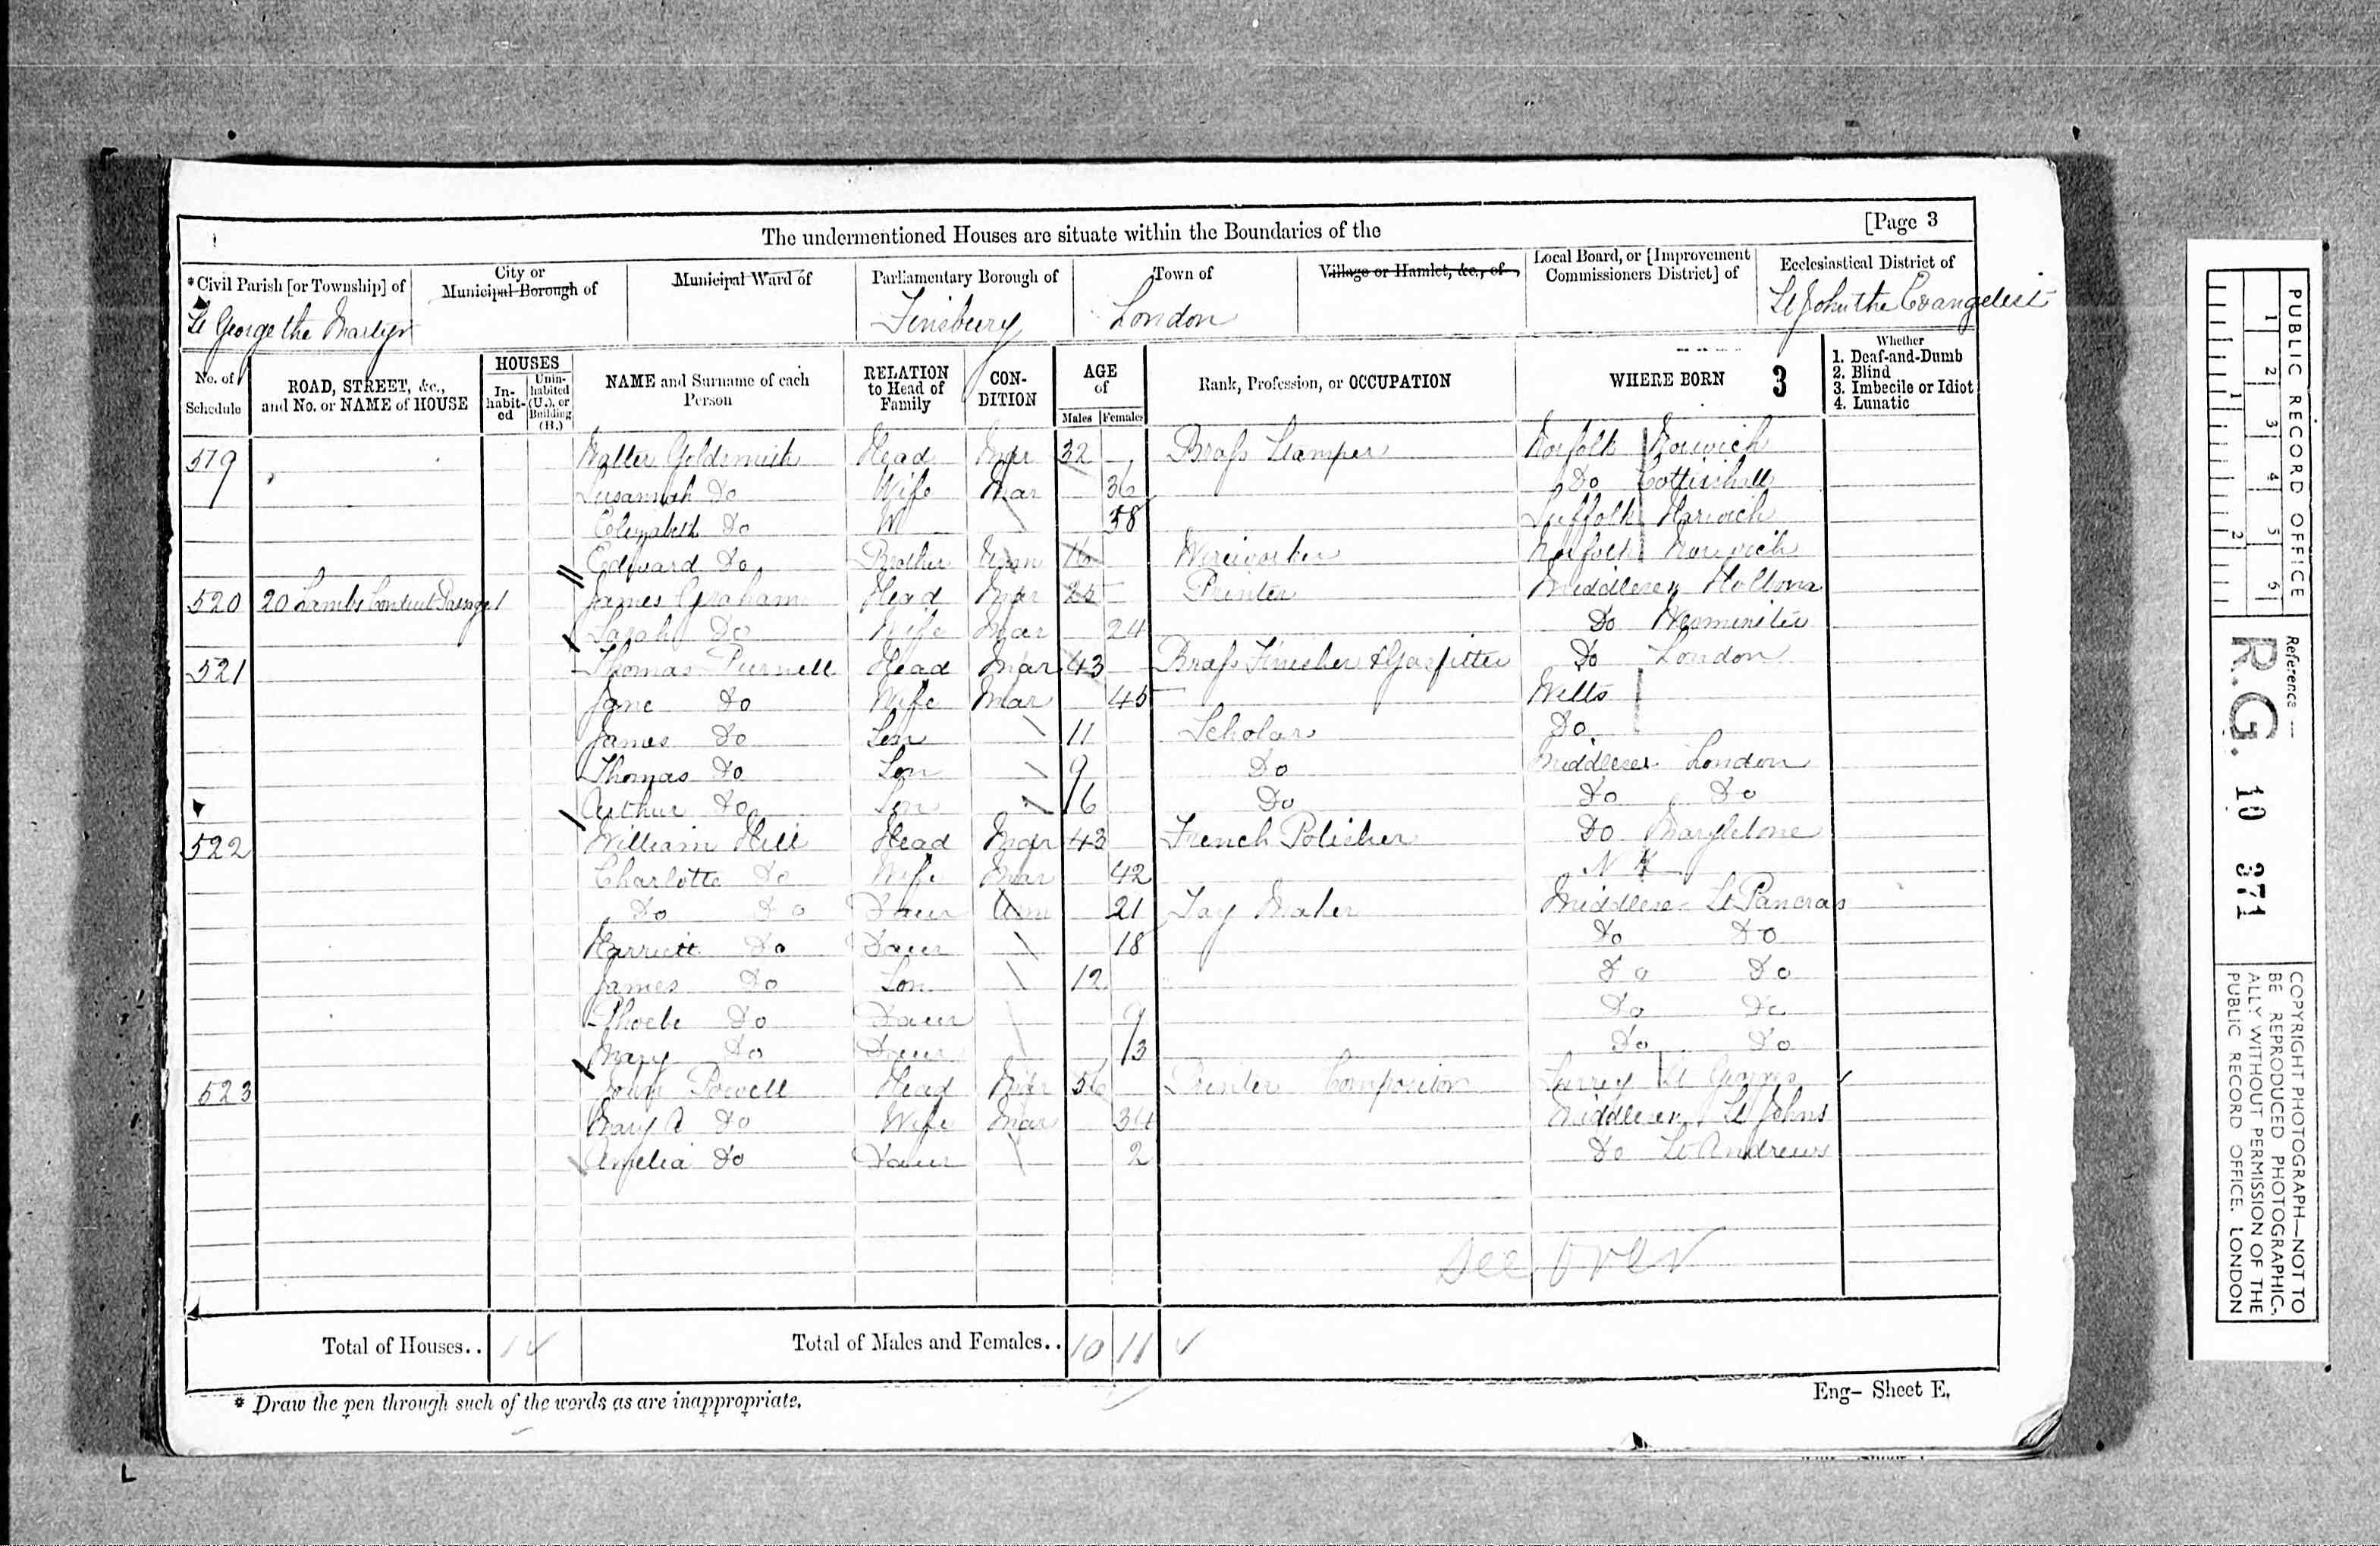 The undermentioned Houses are situate within the Boundaries of the [Page 3
*Civil Parish [or Township] of
St George the Martyr
City or Municipal Borough of
Municipal Ward of
Parliamentary Borough of
Finsbury
Town of
London
Village or Hamlet, &c., of
Local Board, or [Improvement Commissioners District] of
Ecclesiastical District of
St John the Evangelist
No. of Schedule
ROAD, STREET, &c., and No. or NAME of HOUSE
HOUSES
Inhabited
Uninhabited (U.), or Building (B.)
NAME and Surname of each Person
RELATION to Head of Family
CONDITION
AGE of
Males Females
Rank, Profession, or OCCUPATION
WHERE BORN
3
Whether
1. Deaf-and-Dumb
2. Blind
3. Imbecile or Idiot
4. Lunatic
519 Walter Goldsmith Head Mar 32 Brass Stamper Norfolk Norwich
Susannah Do Wife Mar 36 Do Coltishall
Elizabeth Do 58 Suffolk Harwich
Edward Do Brother Unm 16 Wireworker Norfolk Norwich
520 20 Lambs Conduit Passage 1 James Graham Head Mar 25 Printer Middlesex Holborn
Sarah Do Wife Mar 24 Do Wesminster
521 Thomas Purnell Head Mar 43 Brass Finisher & Gasfitter Do London
Jane Do Wife Mar 45 Wilts
James Do Son 11 Scholar Do
Thomas Do Son 9 Do Middlesex London
Arthur Do Son 6 Do Do Do
522 William Hill Head Mar 43 French Polisher Do Marylebone
Charlotte Do Wife Mar 42 N K
Do Do Daur Unm 21 Toy Maker Middlesex St Pancras
Harriett Do Daur 18 Do Do
James Do Son 12 Do Do
Phoebe Do Daur 9 Do Do
Mary Do Daur 3 Do Do
523 John Powell Head Mar 56 Printer Compositor Surrey St Georges
Mary A Do Wife Mar 34 Middlesex St Johns
Amelia Do Daur 2 Do St Andrews
see over
Total of Houses.. 1
Total of Males and Females.. 10 11
* Draw the pen through such of the words as are inappropriate.
Eng- Sheet E.
PUBLIC RECORD OFFICE
1 2 3 4 5 6
1 2
Reference :-
R.G. 10 371
COPYRIGHT PHOTOGRAPH—NOT TO
BE REPRODUCED PHOTOGRAPHIC-
ALLY WITHOUT PERMISSION OF THE
PUBLIC RECORD OFFICE, LONDON